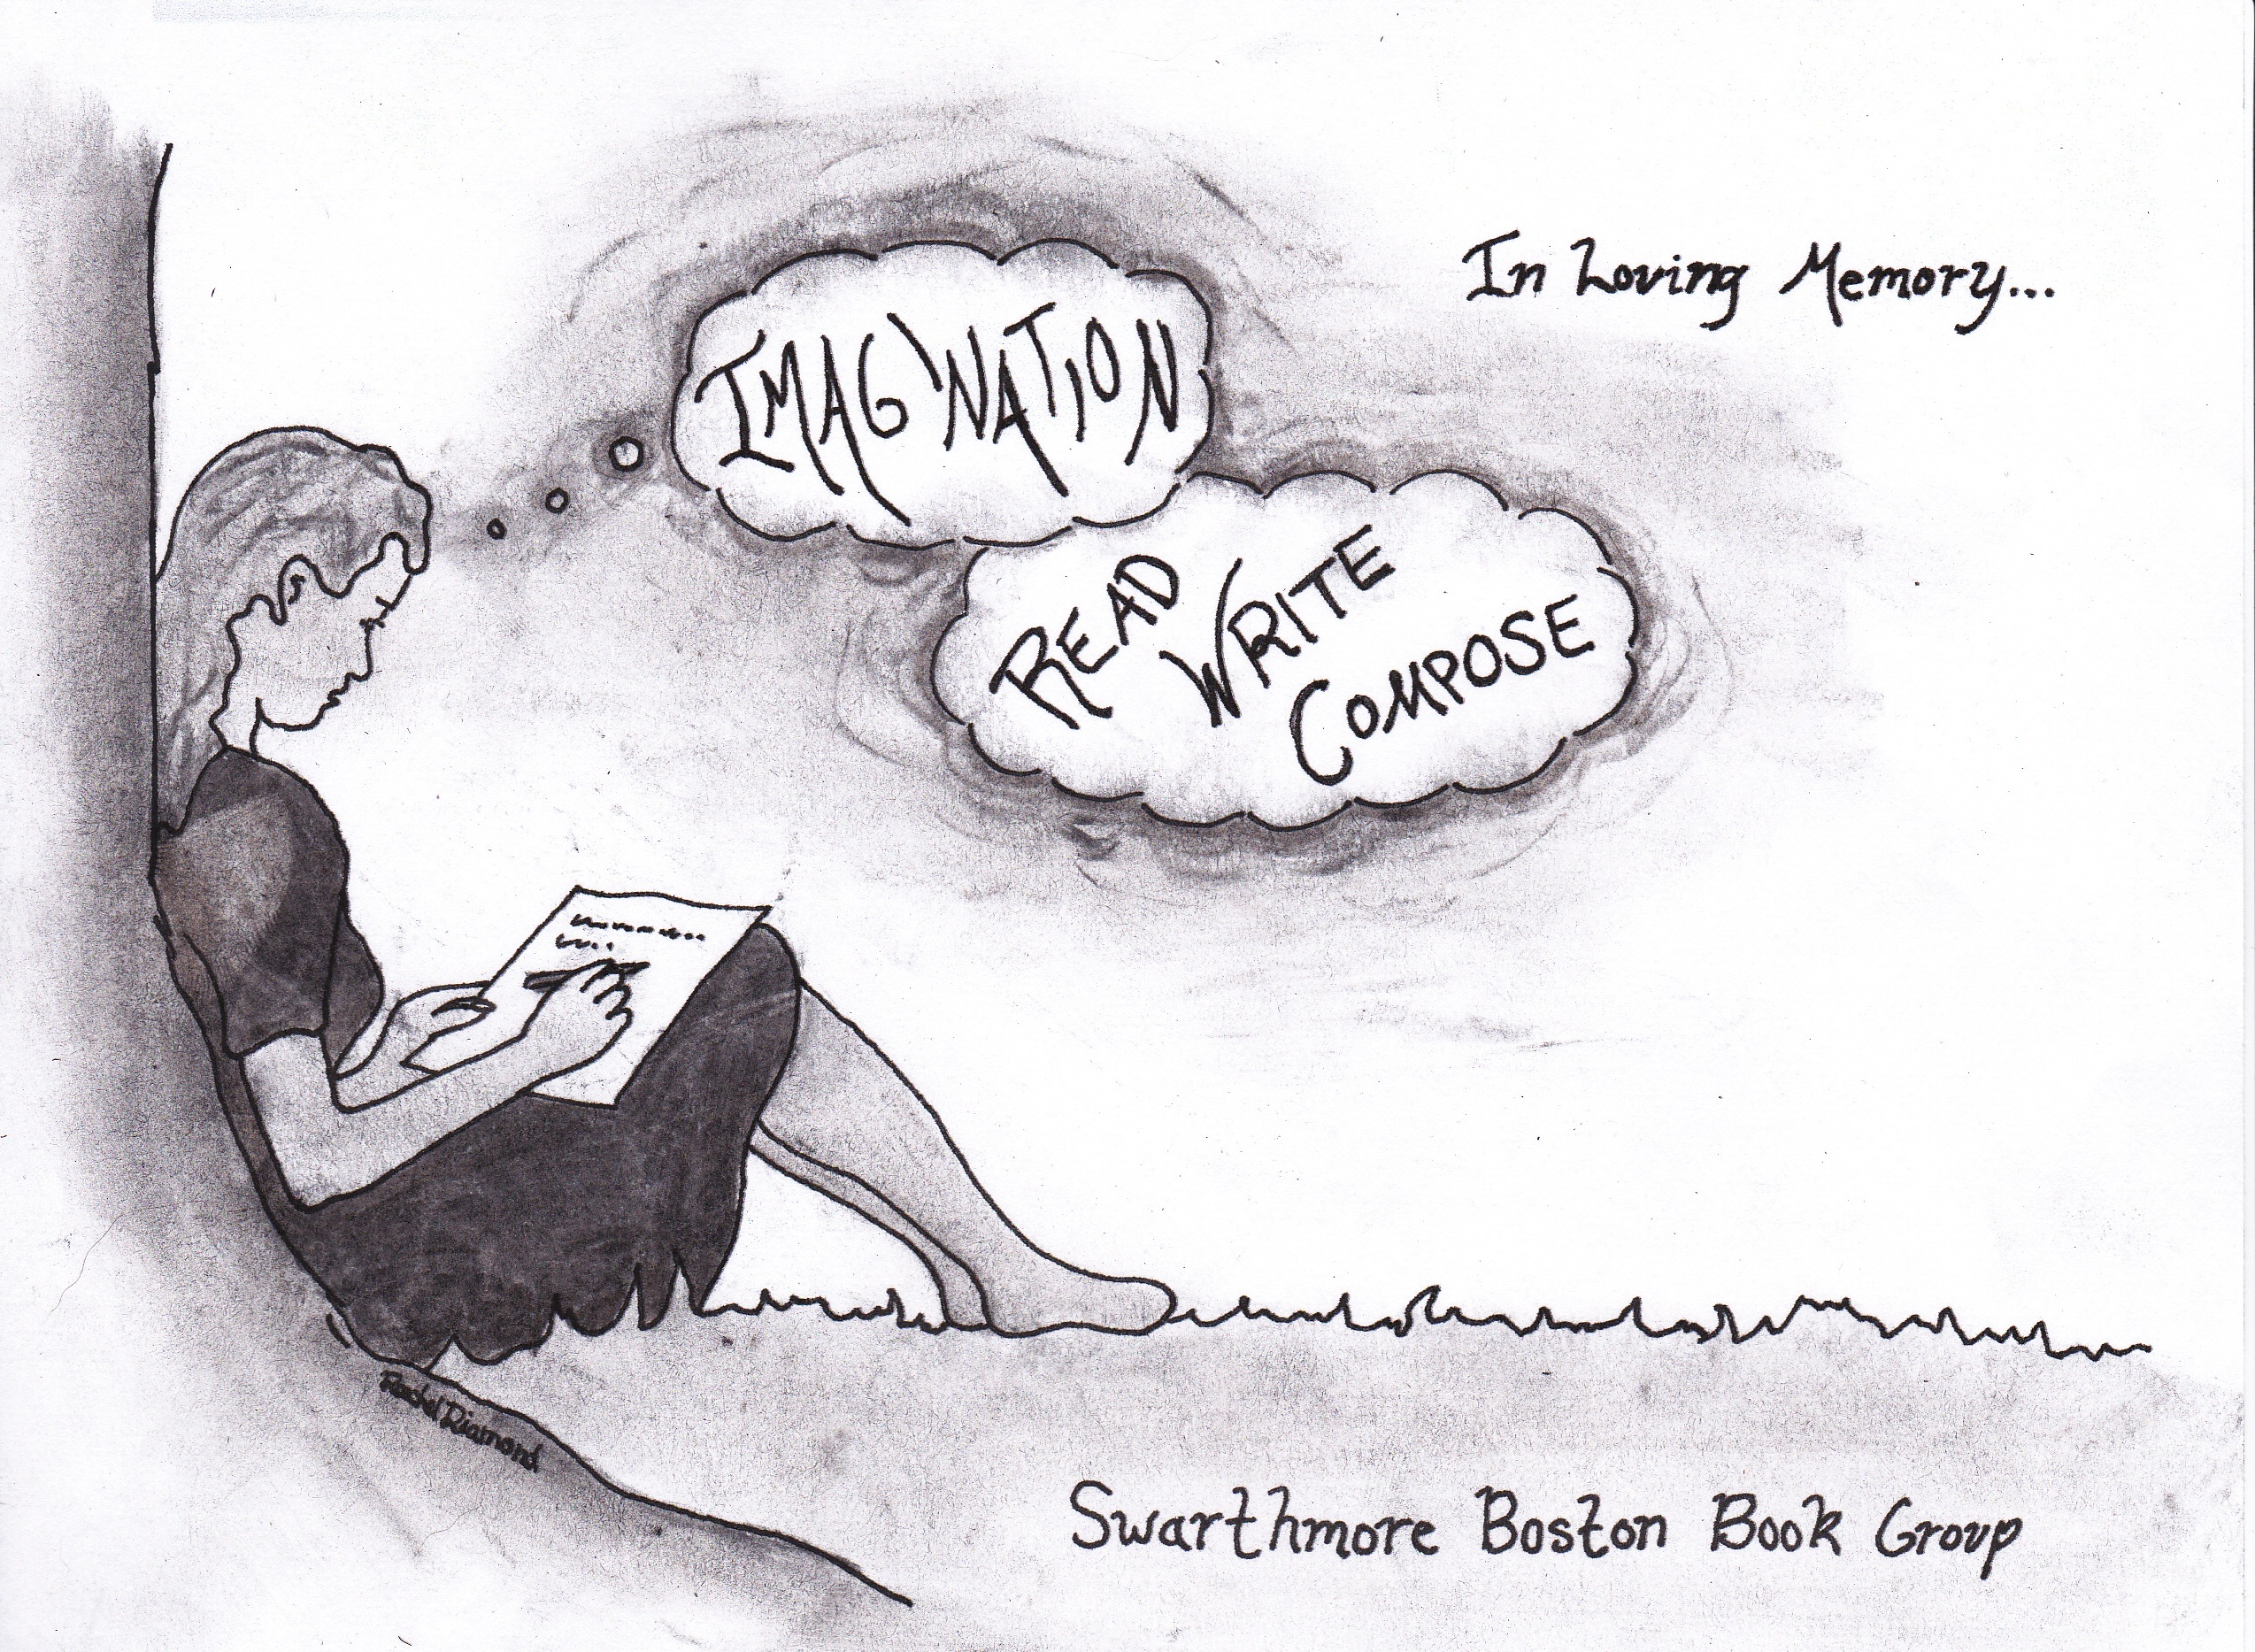 In Loving Memory...
IMAGINATION
READ
WRITE
COMPOSE
Rachel Diamond
Swarthmore Boston Book Group